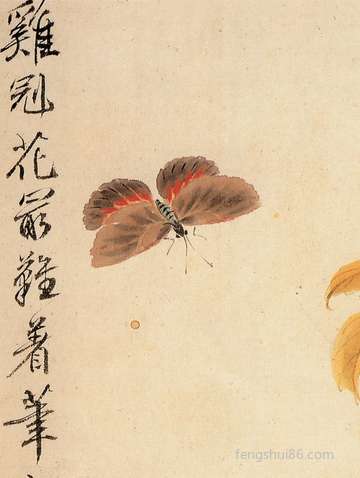 雞冠花最難着筆
fengshui86.com